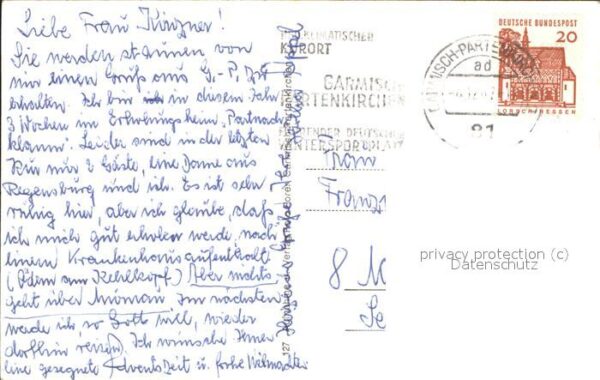 Liebe Frau Kinzner!
Sie werden staunen von
mir einen Gruß aus G.-P. zu
erhalten. Ich bin in diesem Jahr
3 Wochen im Erholungsheim, Partnach
klamm. Leider sind in der letzten
Kur nur 2 Gäste, eine Dame aus
Regensburg und ich. Es ist sehr
ruhig hier, aber ich glaube, daß
ich mich gut erholen werde nach
einem Krankenhausaufenthalt
(Ödem am Kehlkopf) Aber nichts
geht über Im nächsten
werde ich, so Gott will, wieder
dorthin reisen). Ich wünsche Ihnen
eine gesegnete Adventszeit u. frohe Weihnachten
Herzliche Grüße Ihre
127
HEILKLIMATISCHER
KURORT
GARMISCH
PARTENKIRCHEN
FÜHRENDER DEUTSCHER
WINTERSPORTPLATZ
GARMISCH-PARTENKIRCHEN
ad
81
DEUTSCHE BUNDESPOST
20
LORSCH/HESSEN
Frau
Franz
8 M
Se
privacy protection (c)
Datenschutz